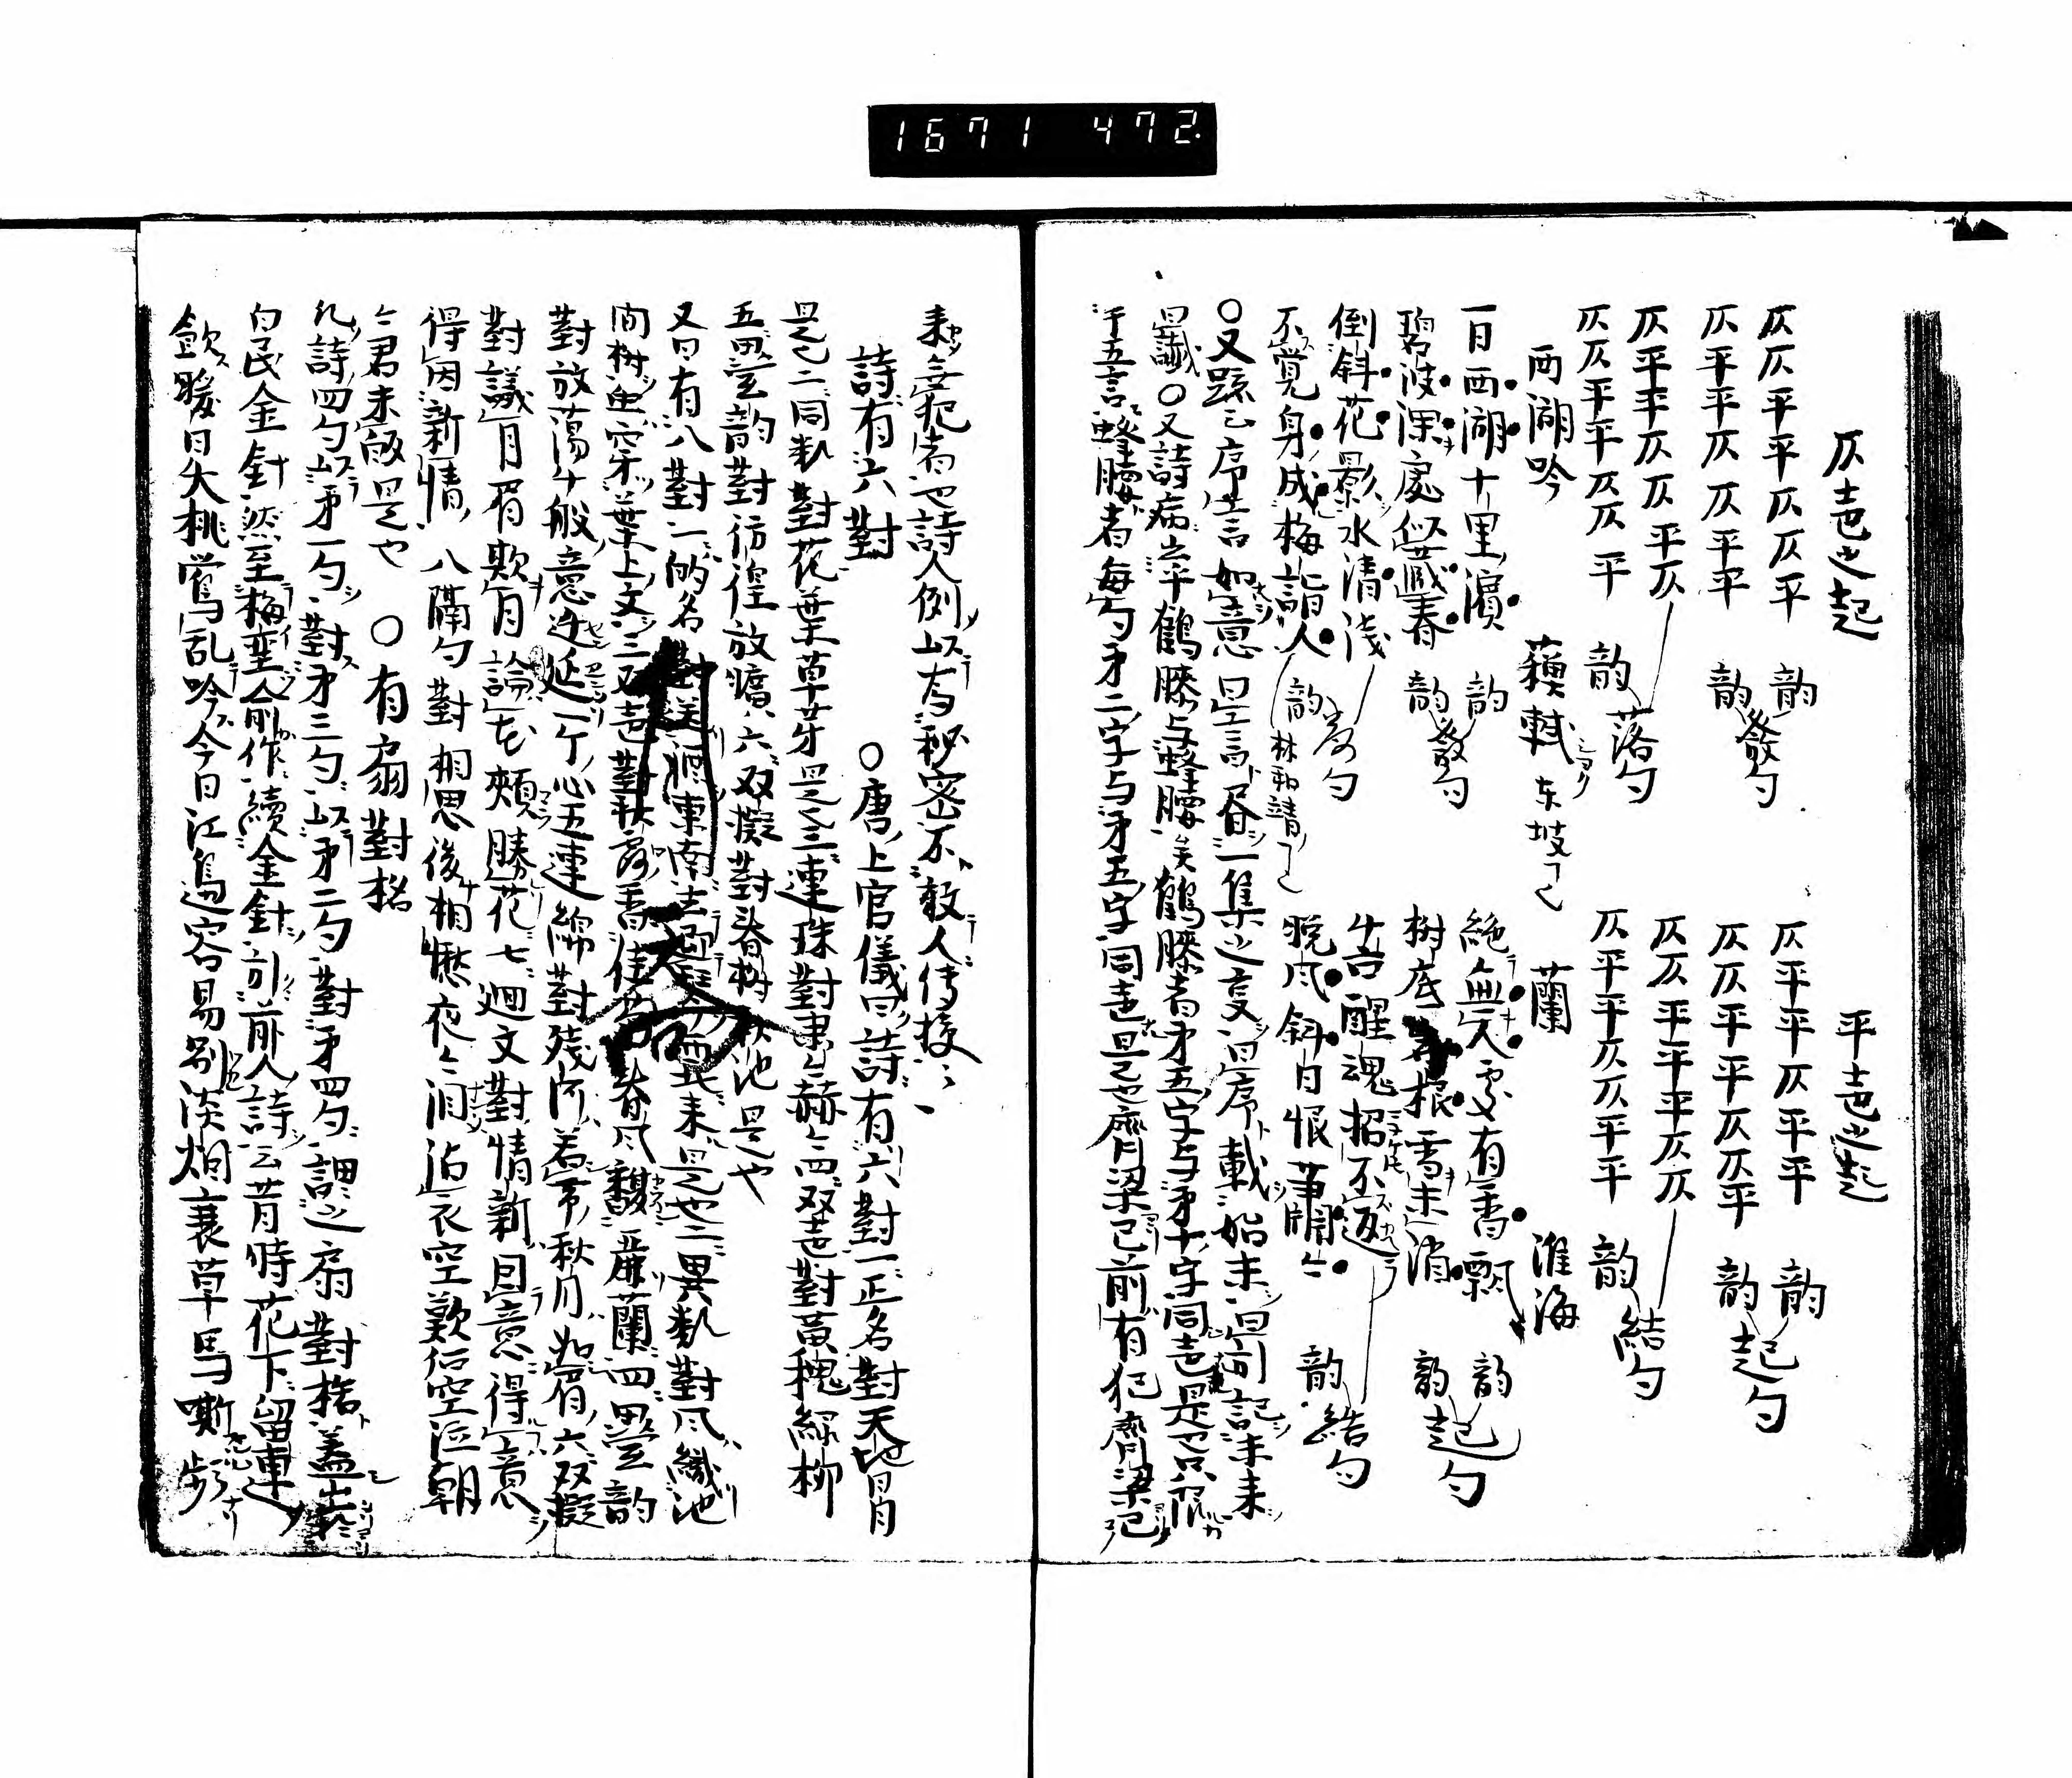 1671 472
仄声之起
平声之起
仄仄平平仄仄平 韵
仄平平仄仄平平 韵 發句
仄平平仄仄平仄
仄仄平平仄仄平 韵 落句
仄平平仄平平 韵
仄仄平平仄仄平 韵 起句
仄仄平平平仄仄
仄平平仄仄平平 韵 結句
西湖吟 蘓軾 东坡
蘭 淮海
一日西湖十里濵 韵
碧波深處繁藏春 韵 發句
倒斜花影水清浅
不覚身成梅詣人 韵 落句 林和靖
絶無人處有香飄 韵
樹底根雪未消 韵 起句
吾醒魂招不返
晩风斜日恨萧萧 韵 結句
○又題云序言如意是言昏一集之意曰序載始末曰前記未来
曰讖○又詩病之平鶴膝与蜂腰矣鶴膝者第五字与第十字同声是也只不限
于五言蜂腰者每句第二字与第五字同声是也齊梁已前有犯齊梁已
来無犯者也詩人例以为秘密不教人传授
詩有六對 ○唐上官儀曰詩有六對一正名對天地日月
是也二同類對花葉草芽是也三連珠對肃々赫々四双声對黄槐緑柳
五畳韵對彷徨放曠六双擬對春樹秋池是也
又曰有八對一的名對送酒東南去迎琴西北来是也二異類對风織池
间树虫穿葉上文三双声對秋露香佳菊春风馥麗蘭四畳韵
對放蕩千般意迁延一个心五連綿對残河若帯秋月如眉六双擬
對議月眉欺月論花頬勝花七廻文對情新因意得意
得因新情八隔句對相思後相愀夜々泪沾衣空歎復空泣朝
々君未皈是也 ○有扇對格
凡詩四句以第一句對第三句以第二句對第四句謂之扇對格盖出
白氏金針然至梅堯人前作續金針引前人詩云昔時花下留連
飲暖日夭桃鶯乱吟今日江邊容易别淡烟衰草馬嘶頻